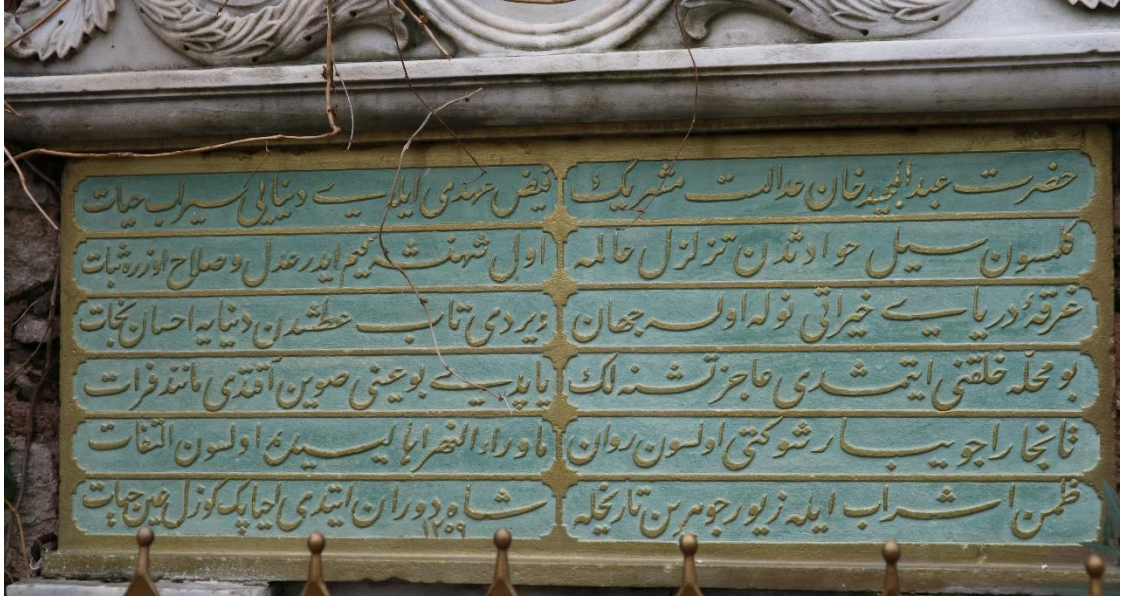 حضرت عبدالمجيد خان عدالت مشربك
فيض عهدى ايلدے دنيايى سيراب حيات
كلمسون سيل حوادثدن تزلزل عالمه
اول شهنشه كيم ايدر عدل و صلاح اوزره ثبات
غرقهٔ درياے خيراتى نوله اولسه جهان
ويردى تاب عطشدن دنيايه احسان نجات
بو محلّه خلقنى ايتمشدى عاجز تشنه لك
ياپدے بو عينى صوين آقتدى مانند فرات
تا بخارا جويبار شوكتى اولسون روان
ماوراء النهر اهاليسينه اولسون التفات
ظمن اشراب ايله زيور جوهرين تاريخله
شاه دوران ايتدى احيا پك كوزل عين حيات
١٢٥٩